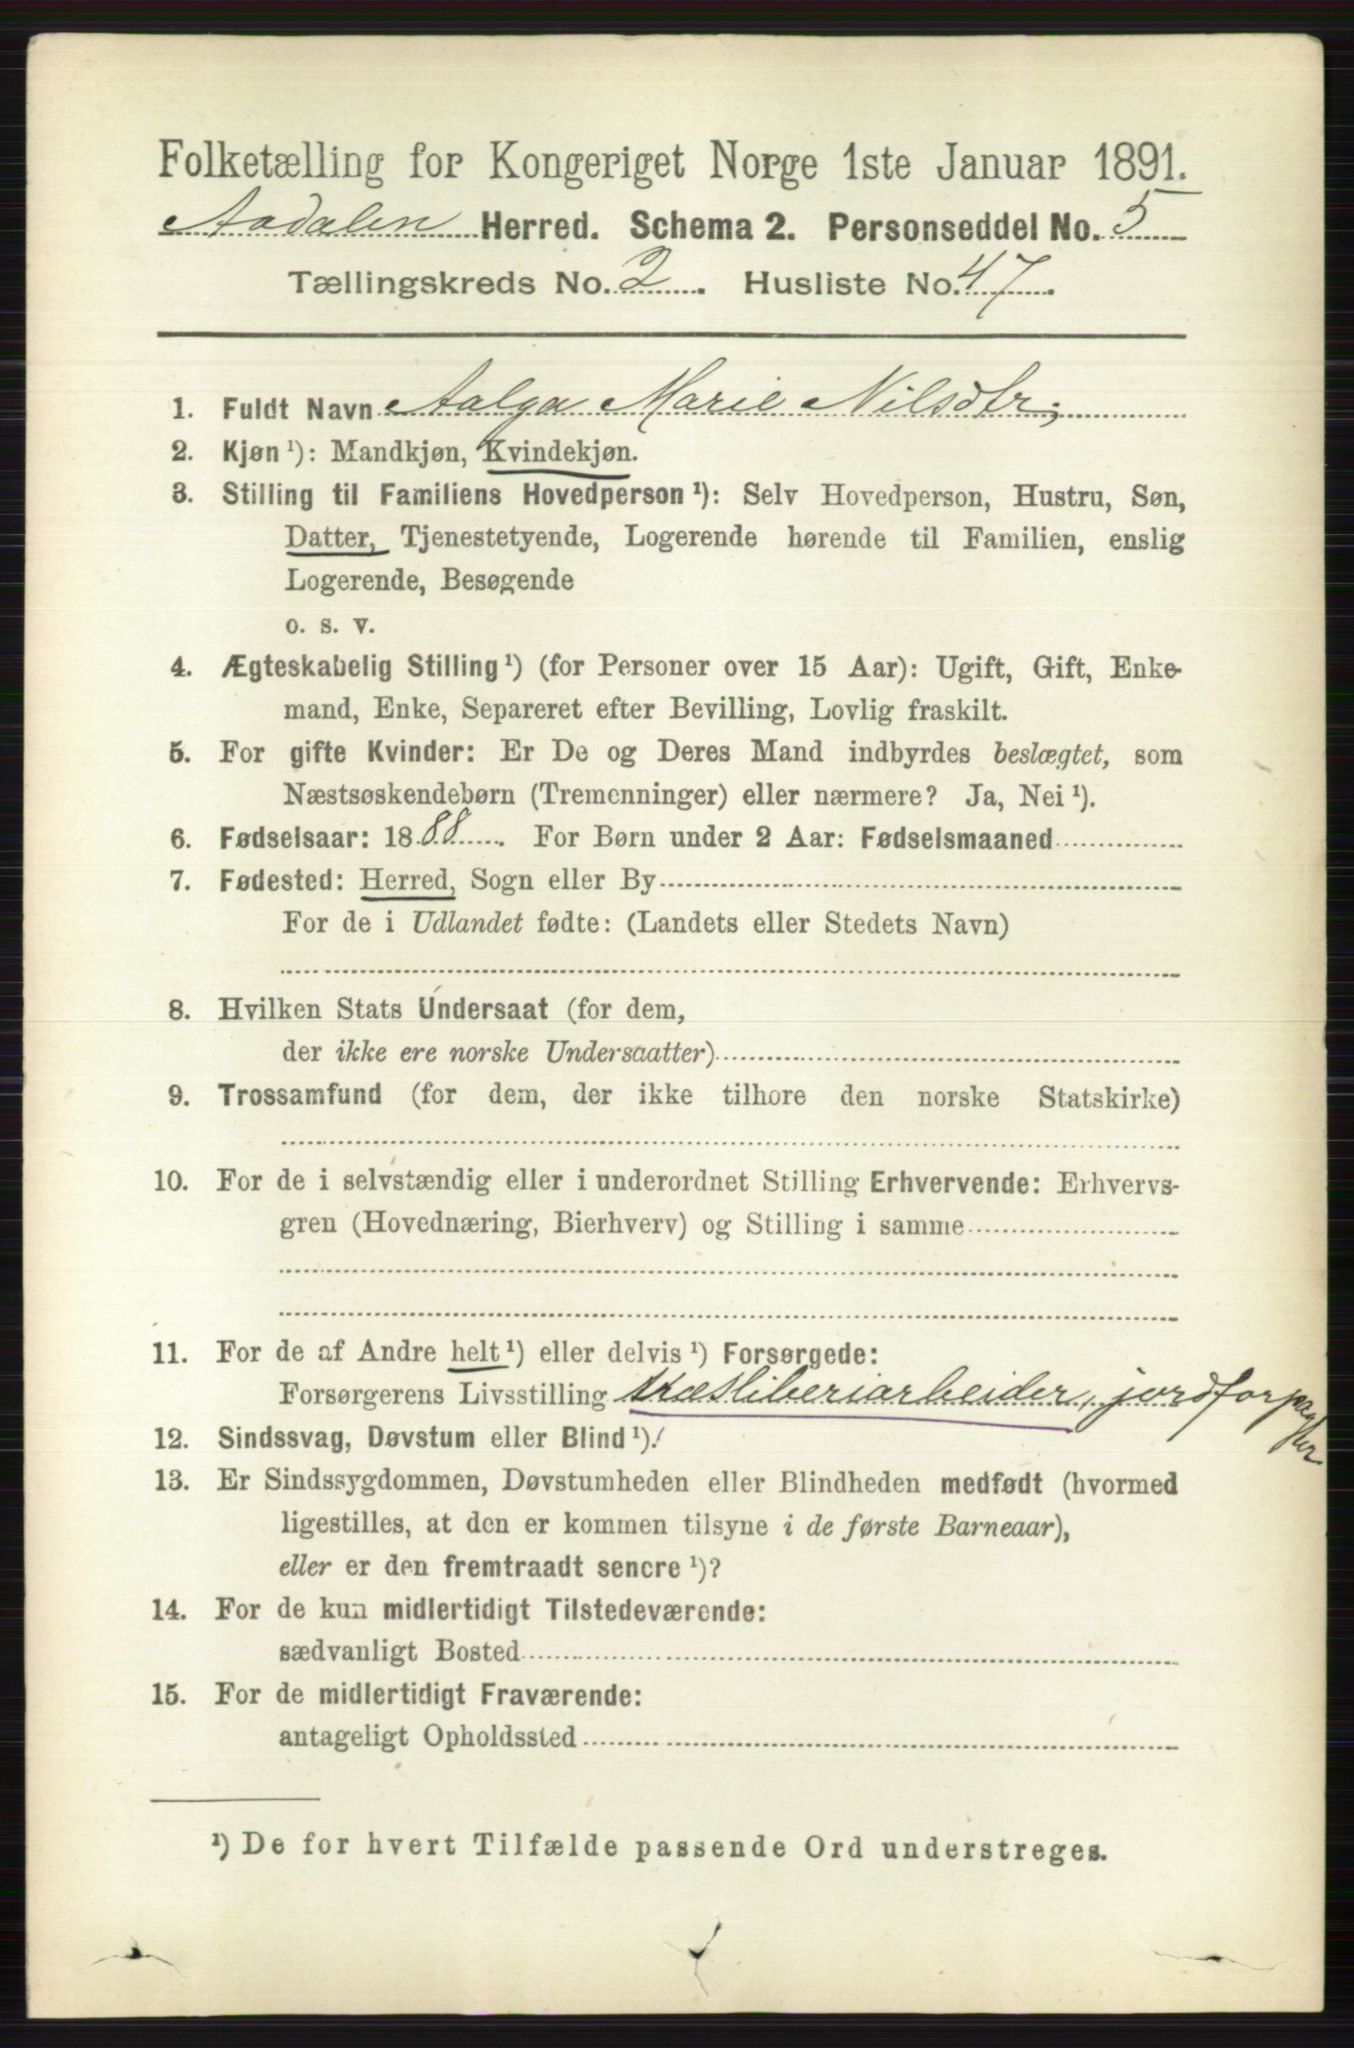 Folketælling for Kongeriget Norge 1ste Januar 1891.
Aadalen Herred. Schema 2. Personseddel No. 5
Tællingskreds No. 2. Husliste No. 47.
1. Fuldt Navn Aalga Marie Nilsdtr,
2. Kjøn ¹): Mandkjøn, Kvindekjøn.
3. Stilling til Familiens Hovedperson ¹): Selv Hovedperson, Hustru, Søn,
Datter, Tjenestetyende, Logerende hørende til Familien, enslig
Logerende, Besøgende
o. s. v.
4. Ægteskabelig Stilling ¹) (for Personer over 15 Aar): Ugift, Gift, Enke-
mand, Enke, Separeret efter Bevilling, Lovlig fraskilt.
5. For gifte Kvinder: Er De og Deres Mand indbyrdes beslægtet, som
Næstsøskendebørn (Tremenninger) eller nærmere? Ja, Nei ¹).
6. Fødselsaar: 1888. For Børn under 2 Aar: Fødselsmaaned
7. Fødested: Herred, Sogn eller By
For de i Udlandet fødte: (Landets eller Stedets Navn)
8. Hvilken Stats Undersaat (for dem,
der ikke ere norske Undersaatter)
9. Trossamfund (for dem, der ikke tilhøre den norske Statskirke)
10. For de i selvstændig eller i underordnet Stilling Erhvervende: Erhvervs-
gren (Hovednæring, Bierhverv) og Stilling i samme
11. For de af Andre helt ¹) eller delvis ¹) Forsørgede:
Forsørgerens Livsstilling træsliberiarbeider, jordforpagter
12. Sindssvag, Døvstum eller Blind ¹).
13. Er Sindssygdommen, Døvstumheden eller Blindheden medfødt (hvormed
ligestilles, at den er kommen tilsyne i de første Barneaar),
eller er den fremtraadt senere ¹)?
14. For de kun midlertidigt Tilstedeværende:
sædvanligt Bosted
15. For de midlertidigt Fraværende:
antageligt Opholdssted
¹) De for hvert Tilfælde passende Ord understreges.